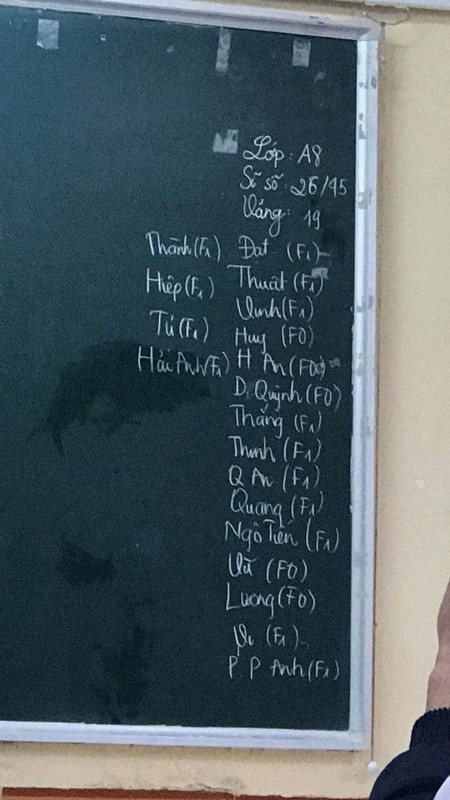 Lớp: A8
Sĩ số: 26/45
Vắng: 19
Thành (F1) Đạt (F1)
Hiệp (F1) Thuật (F1)
Tú (F1) Vinh (F1)
Huy (F0)
Hải Anh (F1) H An (F0)
D. Quỳnh (F0)
Thắng (F1)
Thịnh (F1)
Q An (F1)
Quang (F1)
Ngô Tiến (F1)
Vũ (F0)
Lương (F0)
Vi (F1)
P. P Anh (F1)